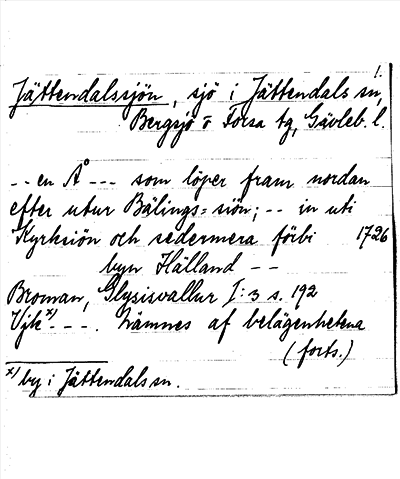 1.
Jättendalssjön, sjö i Jättendals sn,
Bergsjö o Forsa tg, Gävleb. l.
-- en Å --- som löper fram nordan
efter utur Bälings=siön; -- in uti
Kyrksiön och sedermera förbi 1726
byn Hälland --
Broman, Glysisvallur I:3 s. 192
Vjk x) --- . Nämnes af belägenhetena
(forts.)
x) by i Jättendals sn.